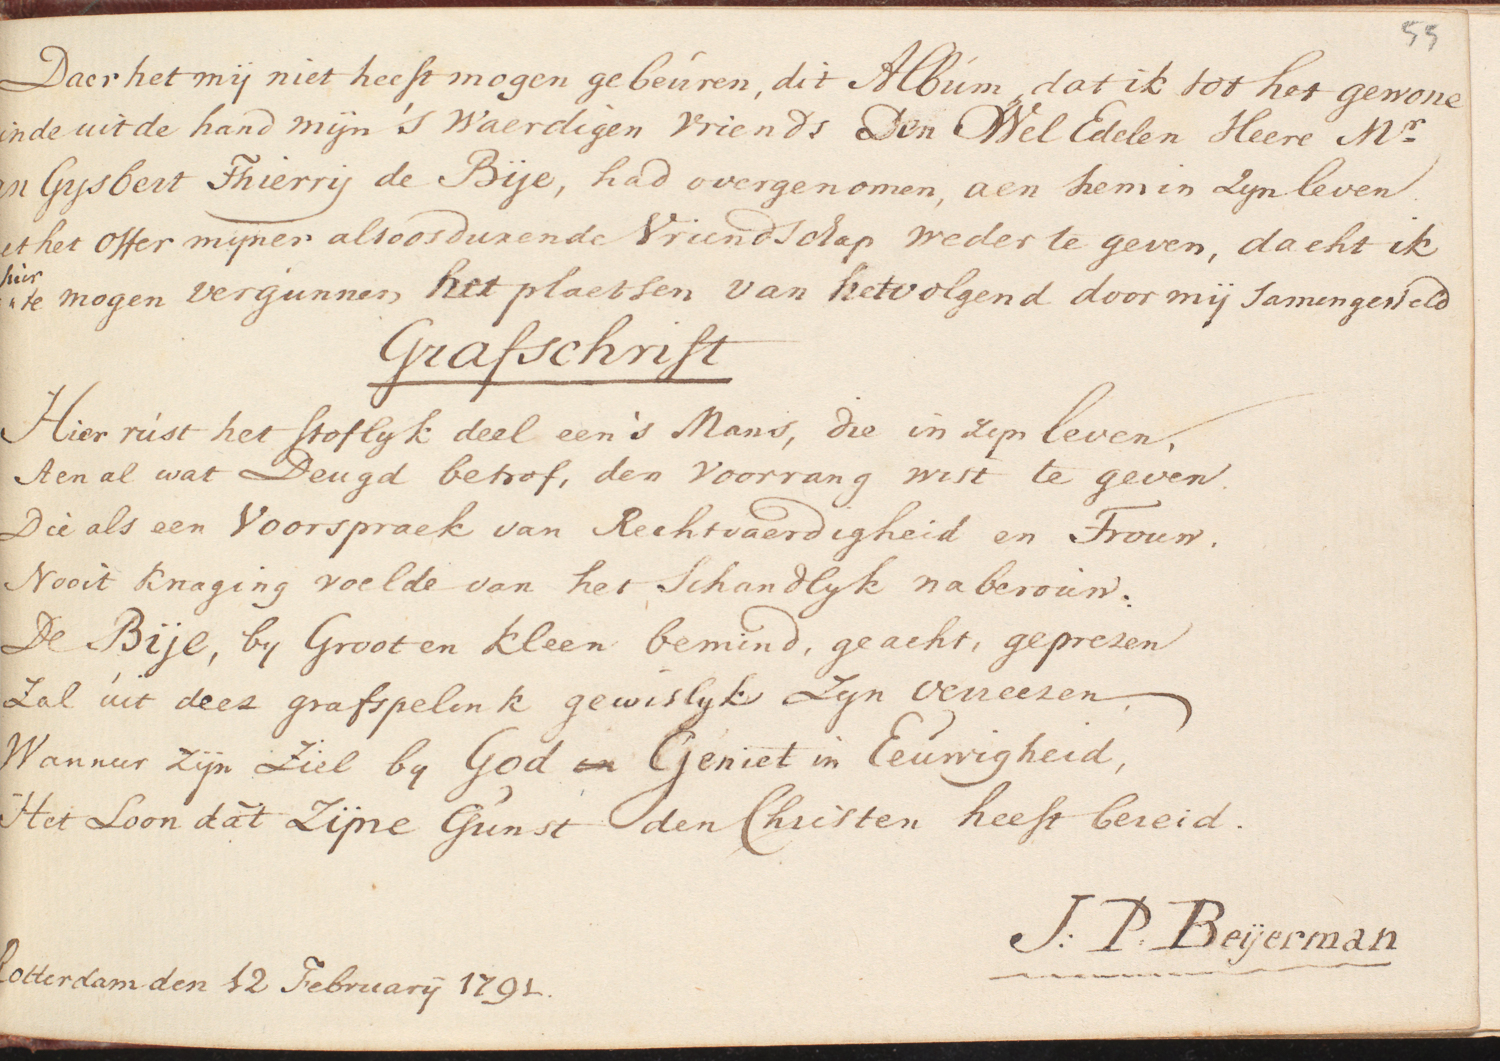 55
Daer het mij niet heeft mogen gebeúren, dit Albúm, dat ik tot het gewone
inde uit de hand mijn's Waerdigen Vriends Den Wel Edelen Heere Mr
an Gysbert Thierrij de Bije, had overgenomen, aen hem in Zyn leven
et het offer mijner altoosdurende Vriendschap weder te geven, dacht ik
hier
te mogen vergunnen het plaetsen van het volgend door mij Samengesteld
Grafschrift
Hier rúst het stoflyk deel een's Mans, die in zyn leven,
Aen al wat Deugd betrof, den voorrang wist te geven.
Die als een Voorspraek van Rechtvaerdigheid en Trouw.
Nooit knaging voelde van het Schandlyk naberoúw.
De Bije, by Groot en kleen bemind, geacht, geprezen
Zal úit deez grafspelonk gewislyk Zyn verreezen,
Wanneer zijn Ziel by God en Geniet in Eeúwigheid,
Het Loon dat Zijne Gúnst den Christen heeft bereid.
J: P: Beijerman
Rotterdam den 12 Februarij 1791.